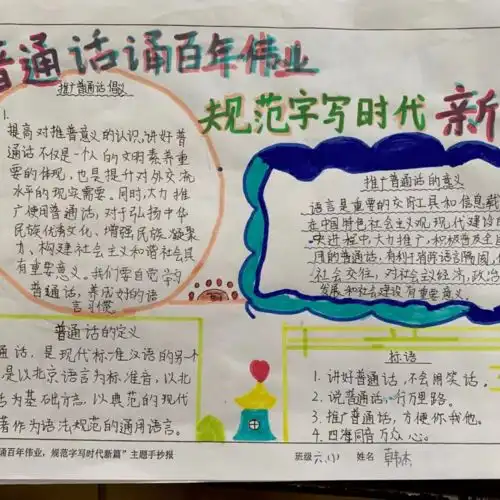 普通话诵百年伟业
规范字写时代新
推广普通话倡议
1.
提高对推普意义的认识,讲好普
通话不仅是一个人的文明素养重
要的体现,也是提升对外交流
水平的现实需要。同时,大力推
广使用普通话,对于弘扬中华
民族优秀文化、增强民族凝聚
力、构建社会主义和谐社会具
有重要意义。我们要自觉学习
普通话,养成好的语
言习惯
推广普通话的意义
语言是重要的交际工具和信息载
在中国特色社会主义现代建设的
进程中,大力推广,积极普及全
用的普通话,有利于消除语言隔阂,
社会交往,对社会主义经济,政治
发展和社会建设有重要意义
普通话的定义
通话,是现代标准汉语的另一个
是以北京语言为标准音,以北
话为基础方言,以典范的现代
著作为语法规范的通用语言。
标语
1. 讲好普通话,不会闹笑话。
2. 说普通话,行万里路。
3. 推广普通话,方便你我他。
4. 四海同音万众一心。
诵百年伟业,规范字写时代新篇”主题手抄报
班级 六.(1) 姓名 韩杰